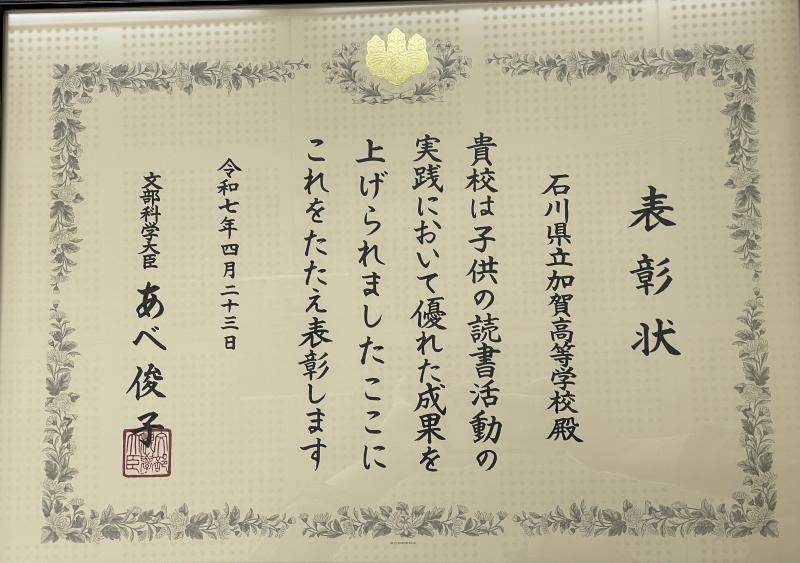 表彰状
石川県立加賀高等学校殿
貴校は子供の読書活動の
実践において優れた成果を
上げられましたここに
これをたたえ表彰します
令和七年四月二十三日
文部科学大臣 あべ俊子